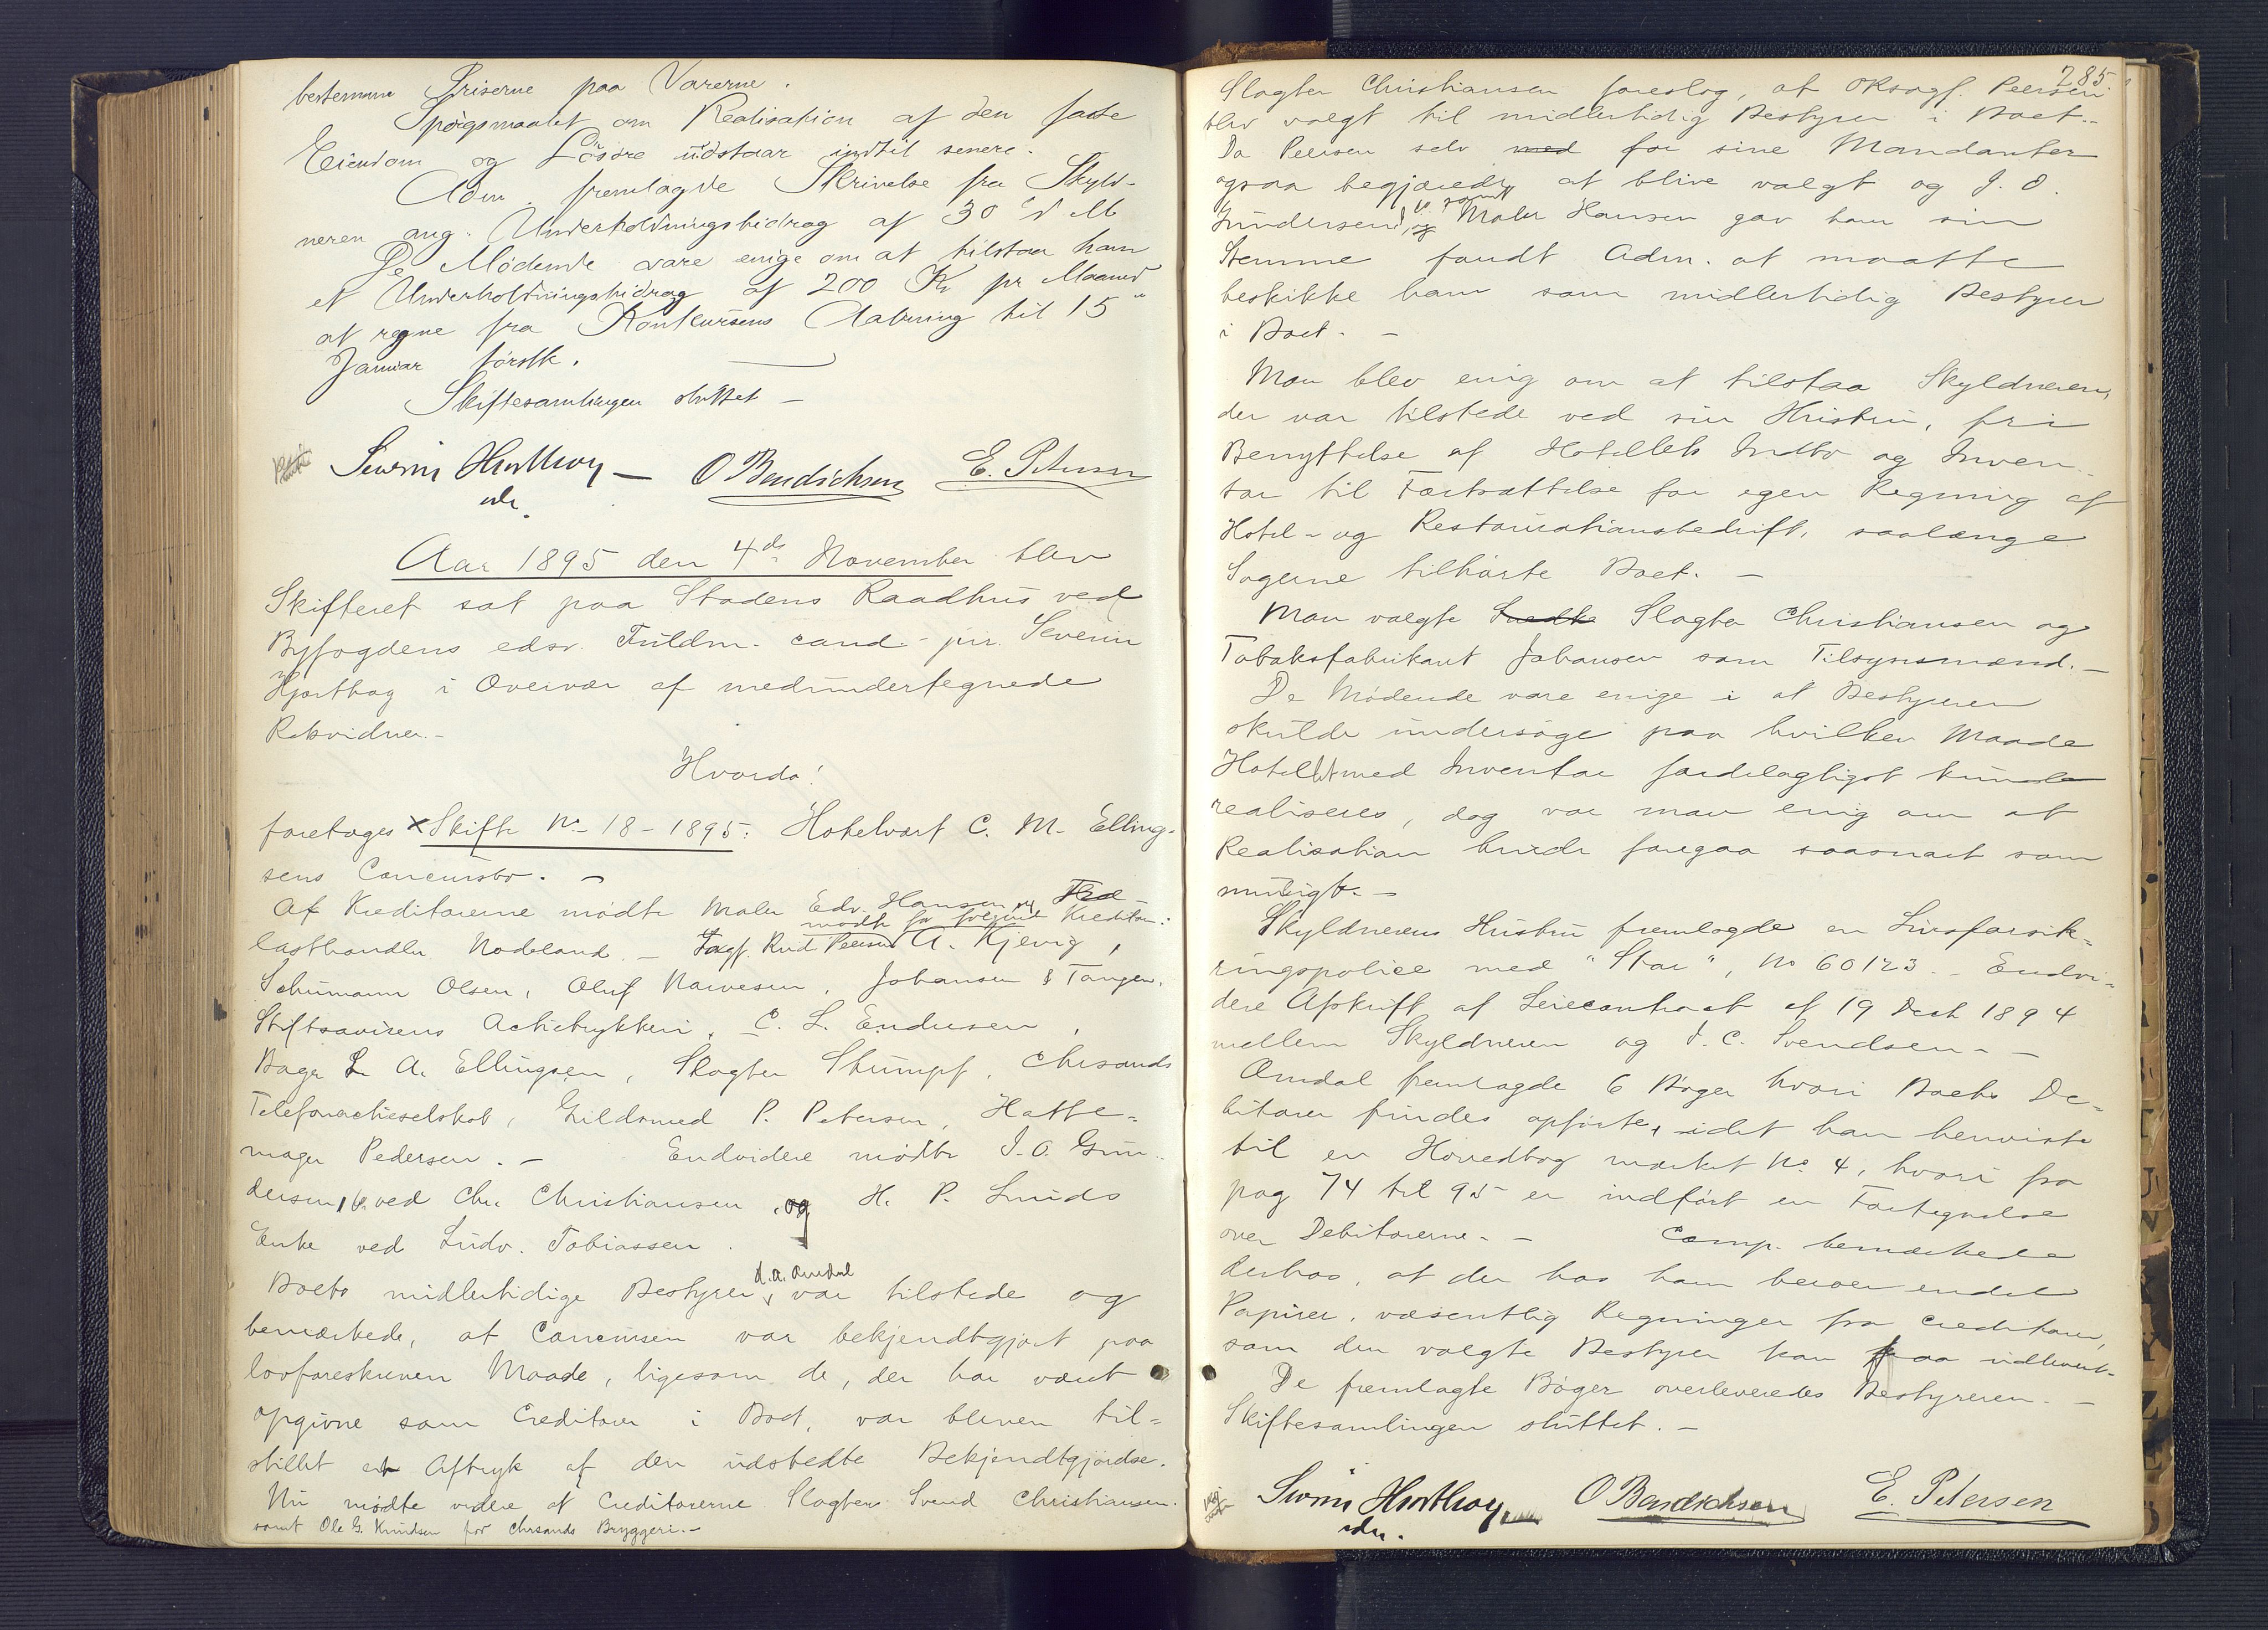 bestemme Priserne paa Varerne.
Spörgsmaalet om Realisation af den faste
Eiendom og Lösöre udstaar indtil senere.
Adm. fremlagde Skrivelse fra Skyld-
neren ang. Underholdningsbidrag af 30 d M
De Mödende vare enige om at tilstaa ham
et Underholdningsbidrag af 200 Kr pr Maaned
at regne fra Konkursens Aabning til 15
Januar förstk.
Skiftesamlingen sluttet –
Severin Hjorthoy – O Bendichsen E. Petersen
Aar 1895 den 4de November blev
Skifteret sat paa Stadens Raadhus ved
Byfogdens edsv. Fuldm. cand. jur. Severin
Hjorthoy i Overvær af medundertegnede
Retsvidner. –
Hvorda!
foretoges Skifte No 18 – 1895: Hotelvært C. M. Elling-
sens Concursbo. –
Af Kreditorerne mödte Maler Edv. Hansen og Træ-
mödte for fölgende Kreditor:
lasthandler Nodeland. – Sagf. Rud Peersen A. Kjevig,
Schumann Olsen, Oluf Narvesen, Johansen & Tangen,
Stiftsavisens Actietrykkeri, C. L. Endresen,
Bager L A. Ellingsen, Slagter Stumpf, Chrsands
Telefonactieselskab, Guldsmed P. Petersen, Hatte-
mager Pedersen. – Endvidere mödte J. O. Gun-
dersen ved Chr. Christiansen og H. P. Lunds
Enke ved Ludv. Tobiassen.
d. A. Omdal
Boets midlertidige Bestyrer var tilstede og
bemærkede, at Concursen var bekjendtgjort paa
lovforeskreven Maade, ligesom de, der har været
opgivne som Creditorer i Boet, var bleven til-
stillet et Aftryk af den udstedte Bekjendtgjørelse.
Nu mödte videre af Creditorerne Slagter Svend Christiansen
samt Ole G. Knudsen for Chrsands Bryggeri. –
285
Slagter Christiansen foreslog, at OKsagf. Peersen
blev valgt til midlertidig Bestyrer i Boet. –
Da Peersen selv med for sine Mandanter
ogsaa begjærede at blive valgt og J. O.
samt
Gundersen og Maler Hansen gav ham sin
Stemme fandt Adm. at maatte
beskikke ham som midlertidig Bestyrer
i Boet. –
Man blev enig om at tilstaa Skyldneren,
der var tilstede ved sin Hustru, fri
Benyttelse af Hotellets Indbo og Inven-
tar til Fortsættelse for egen Regning af
Hotel- og Restaurationsbedrift, saalænge
Sagerne tilhörte Boet. –
Man valgte Slagter Christiansen og
Tobaksfabrikant Johansen som Tilsynsmænd. –
De Mödende vare enige i at Bestyreren
skulde undersöge paa hvilken Maade
Hotellet med Inventar fordelagtigst kunde
realiseres, dog var man enig om at
Realisation burde foregaa saasnart som
muligt. –
Skyldnerens Hustru fremlagde en Livsforsik-
ringspolice med "Star", No 60123. – Endvi-
dere Afskrift af Leiecontract af 19 Decb 1894
mellem Skyldneren og J. C. Svendsen. –
Omdal fremlagde 6 Böger hvori Boets De-
bitorer findes opförte, idet han henviste
til en Hovedbog mærket No 4, hvori fra
pag 74 til 95 er indfört en Fortegnelse
over Debitorerne. – Comp. bemærkede
derhos, at der hos ham beroer endel
Papirer, væsentlig Regninger fra Creditorer,
som den valgte Bestyrer kan faa udleveret.
De fremlagte Böger overleveredes Bestyreren. –
Skiftesamlingen sluttet. –
Severin Hjorthoy O Bendichsen E. Petersen